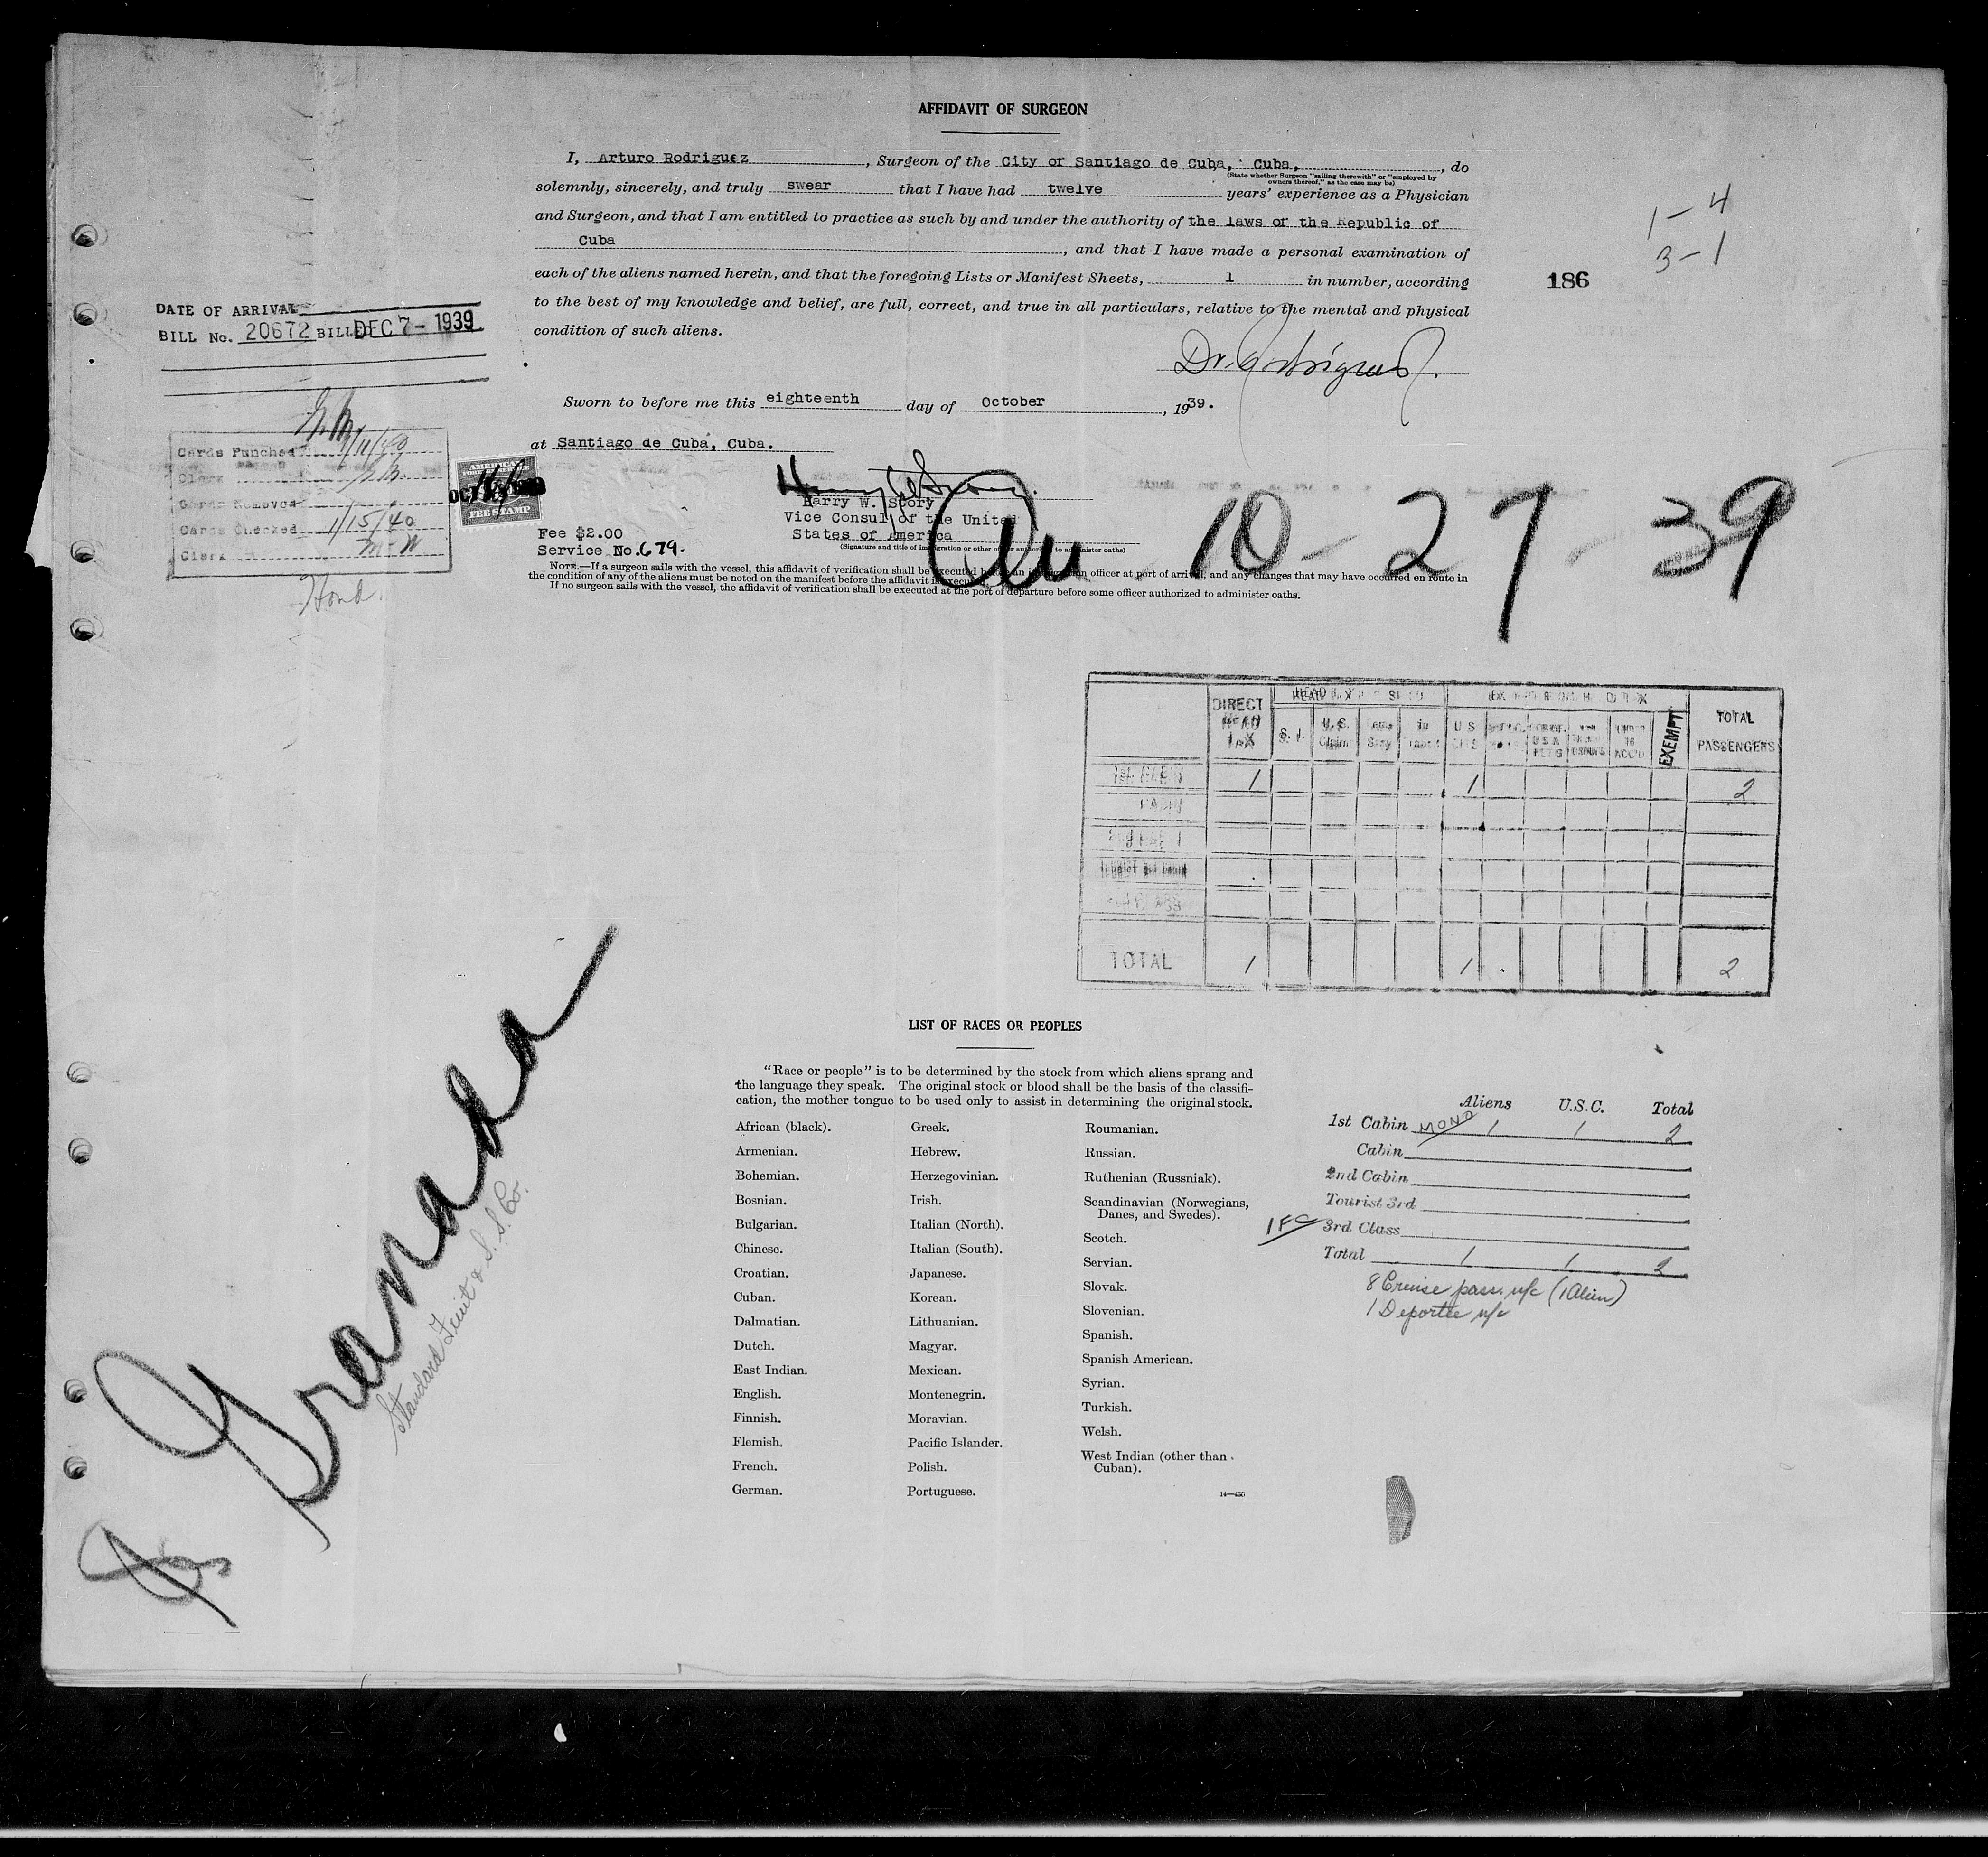 AFFIDAVIT OF SURGEON
I, Arturo Rodriguez, Surgeon of the City of Santiago de Cuba, Cuba, do
(State whether Surgeon "sailing therewith" or "employed by
owners thereof," as the case may be)
solemnly, sincerely, and truly swear that I have had twelve years' experience as a Physician
and Surgeon, and that I am entitled to practice as such by and under the authority of the laws of the Republic of
Cuba, and that I have made a personal examination of
each of the aliens named herein, and that the foregoing Lists or Manifest Sheets, 1 in number, according
to the best of my knowledge and belief, are full, correct, and true in all particulars, relative to the mental and physical
condition of such aliens.
1-4
3-1
186
DATE OF ARRIVAL
BILL No. 20672 BILLED DEC 7- 1939
Sworn to before me this eighteenth day of October, 1939.
at Santiago de Cuba, Cuba.
Cards Punched 1/11/40
Clerk
Cards Removed
Cards Checked 1/15/40
Clerk
Hond.
AMERICAN
FEE STAMP
Harry W. Story
Vice Consul of the United
States of America
(Signature and title of immigration or other officer authorized to administer oaths)
Fee $2.00
Service No. 679.
10-27-39
NOTE.—If a surgeon sails with the vessel, this affidavit of verification shall be executed before an immigration officer at port of arrival, and any changes that may have occurred en route in
the condition of any of the aliens must be noted on the manifest before the affidavit is executed.
If no surgeon sails with the vessel, the affidavit of verification shall be executed at the port of departure before some officer authorized to administer oaths.
DIRECT HEAD TAX
S. I.
U.S. Claim
U S CITS
EXEMPT
TOTAL PASSENGERS
1st CABIN 1 1 2
CABIN
TOTAL 1 1 2
Granada
Standard Fruit & S.S. Co.
LIST OF RACES OR PEOPLES
"Race or people" is to be determined by the stock from which aliens sprang and
the language they speak. The original stock or blood shall be the basis of the classifi-
cation, the mother tongue to be used only to assist in determining the original stock.
African (black).
Armenian.
Bohemian.
Bosnian.
Bulgarian.
Chinese.
Croatian.
Cuban.
Dalmatian.
Dutch.
East Indian.
English.
Finnish.
Flemish.
French.
German.
Greek.
Hebrew.
Herzegovinian.
Irish.
Italian (North).
Italian (South).
Japanese.
Korean.
Lithuanian.
Magyar.
Mexican.
Montenegrin.
Moravian.
Pacific Islander.
Polish.
Portuguese.
Roumanian.
Russian.
Ruthenian (Russniak).
Scandinavian (Norwegians,
Danes, and Swedes).
Scotch.
Servian.
Slovak.
Slovenian.
Spanish.
Spanish American.
Syrian.
Turkish.
Welsh.
West Indian (other than
Cuban).
14—450
Aliens U.S.C. Total
1st Cabin MOND 1 1 2
Cabin
2nd Cabin
Tourist 3rd
1 FC 3rd Class
Total 1 1 2
8 Cruise pass. n/c (1 Alien)
1 Deportee n/c